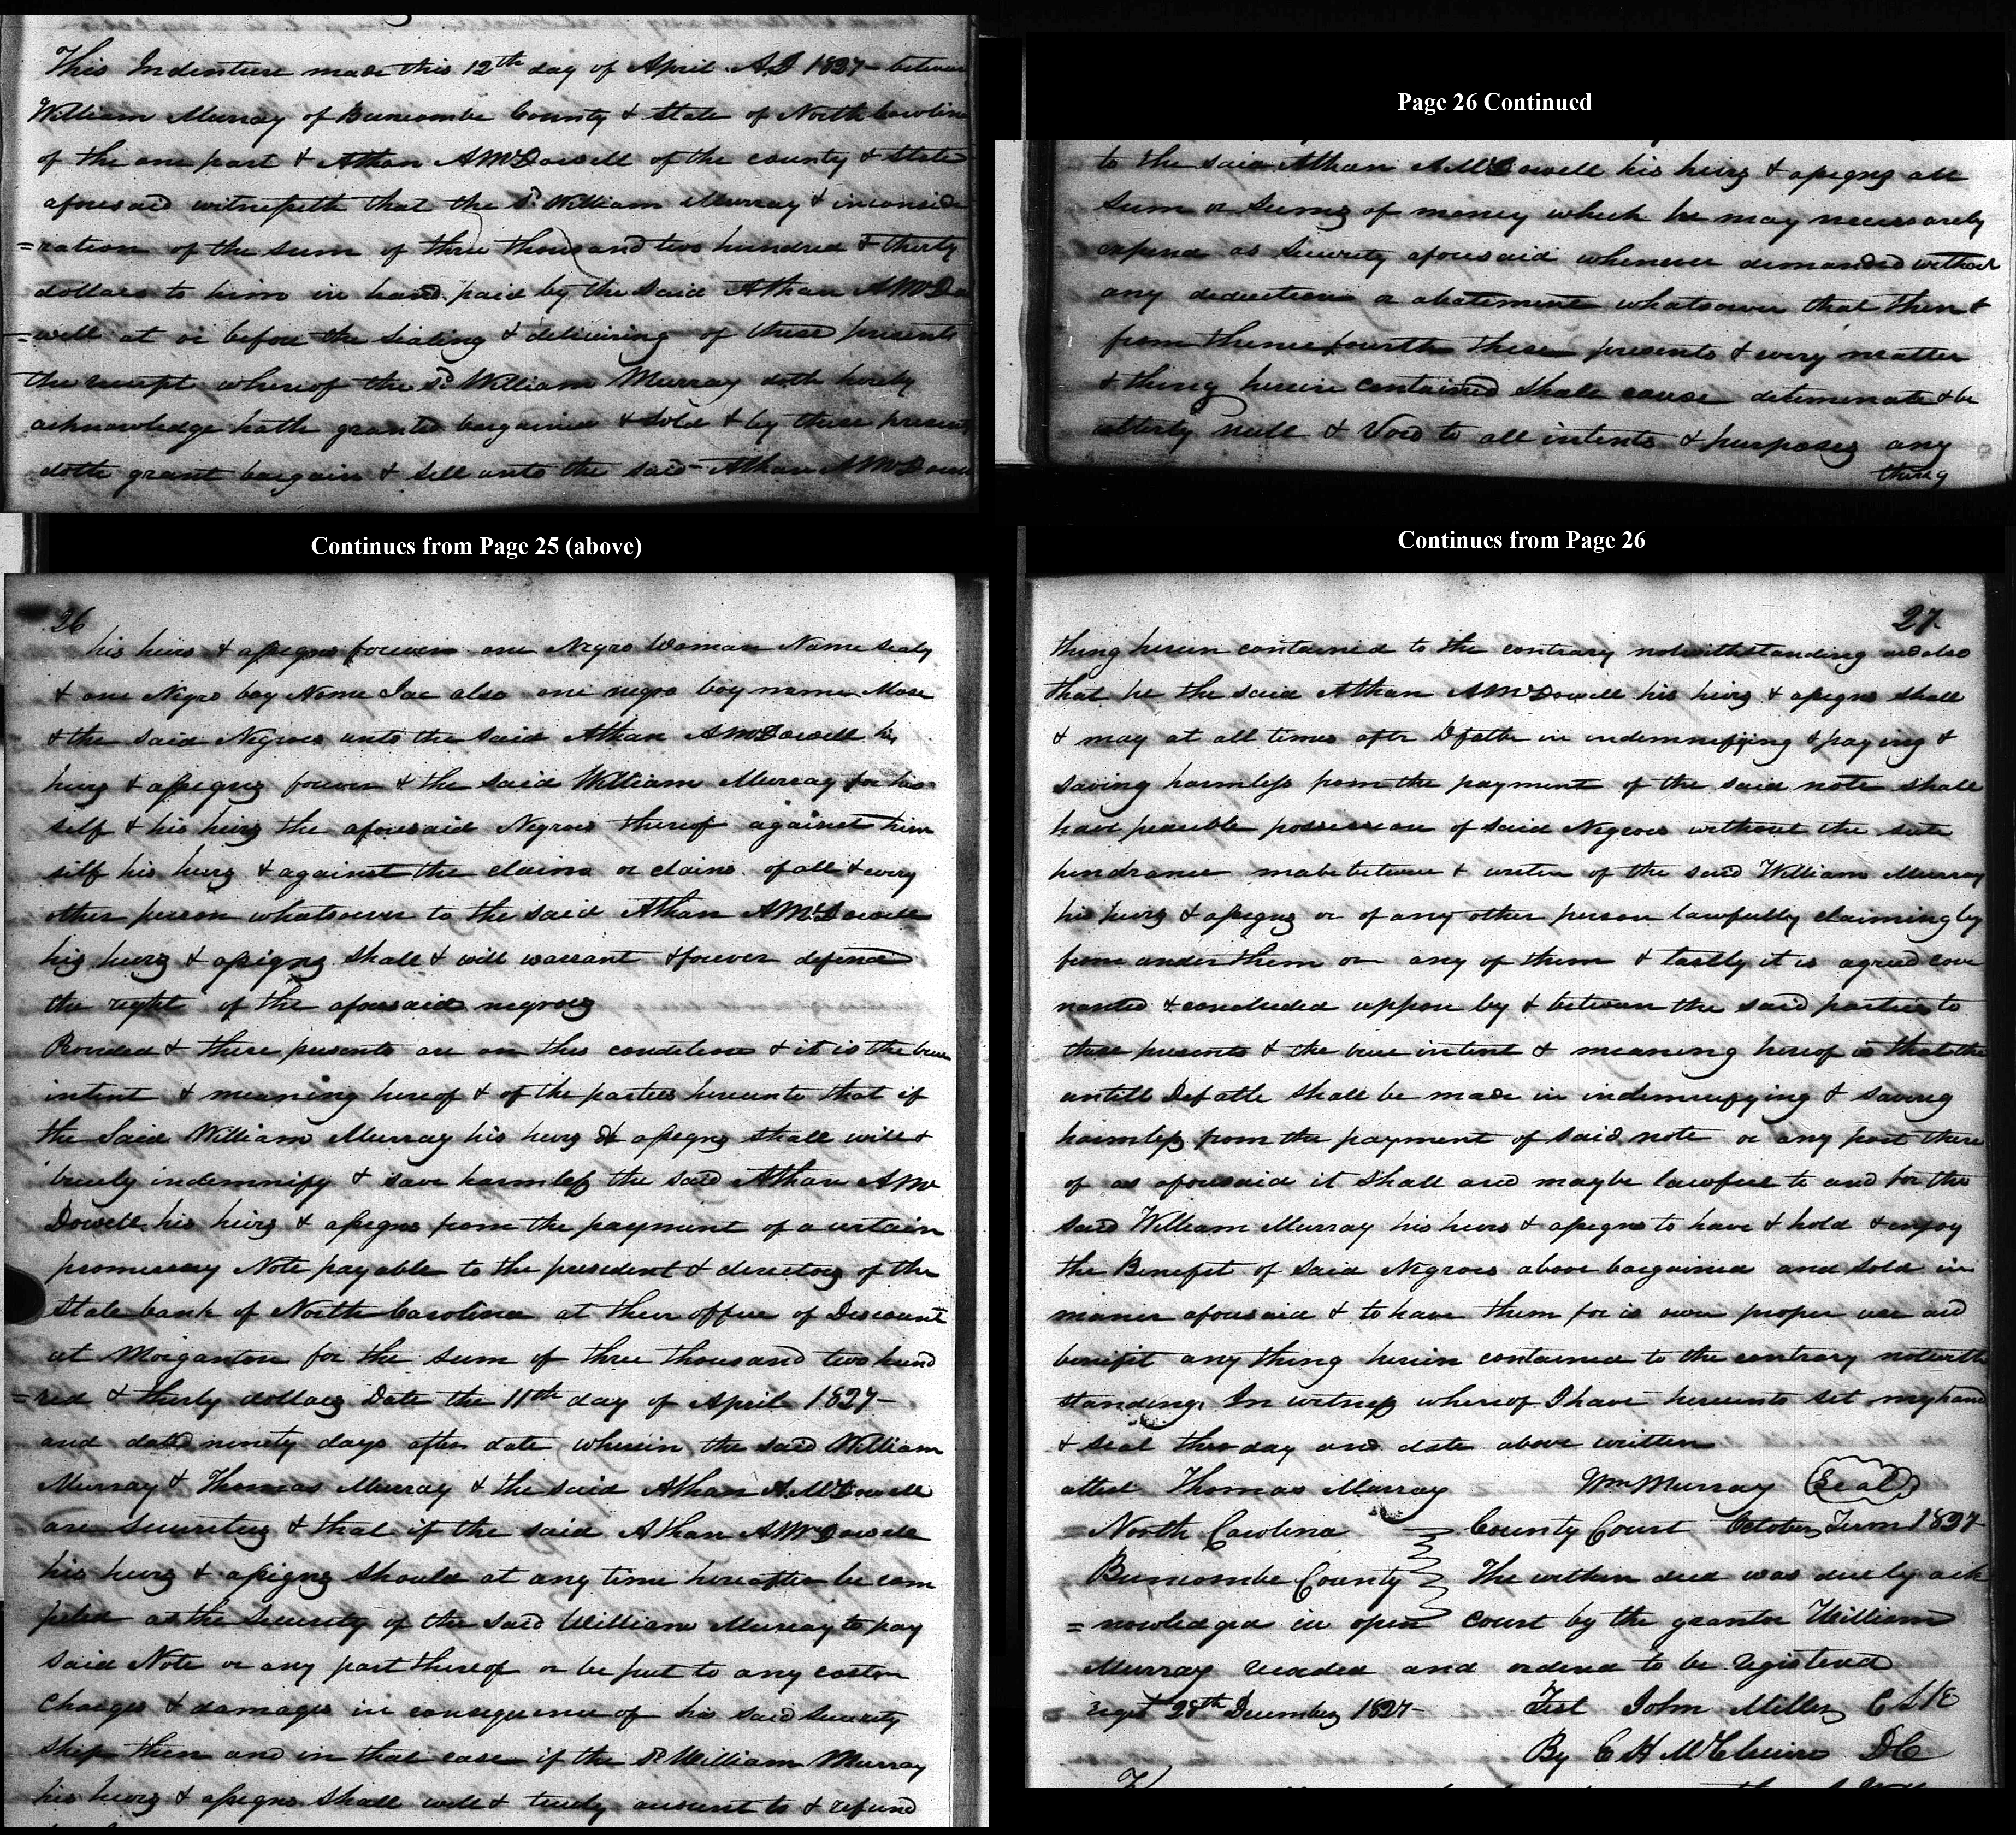 This Indenture made this 12th day of April AD 1827 between
William Murray of Buncombe County & State of North Carolina
of the one part & Athan A McDowell of the county & State
aforesaid witnesseth that the sd William Murray & inconside
=ration of the sum of three thousand two hundred & thirty
dollars to him in hand paid by the said Athan A McDo
=well at or before the sealing & delivering of these presents
the receipt whereof the sd William Murray doth hereby
acknowledge hath granted bargained & sold & by these presents
doth grant bargain & sell unto the said Athan A McDowell
Continues from Page 25 (above)
26
his heirs & assigns forever one Negro Woman Name Sealy
& one Negro boy Name Joe also one negro boy name Mose
& the said Negroes unto the said Athan A McDowell his
heirs & assigns forever & the said William Murray for him
self & his heirs the aforesaid Negroes thereof against him
self his heirs & against the claim or claims of all & every
other person whatsoever to the said Athan A McDowell
his heirs & assigns shall & will warrant & forever defend
the right of the aforesaid negroes
Provided & these presents are on this condition & it is the true
intent & meaning hereof & of the parties hereunto that if
the Said William Murray his heirs & assigns shall will &
truely indemnify & save harmless the said Athan A Mc
Dowell his heirs & assigns from the payment of a certain
promissary Note payable to the president & directors of the
State bank of North Carolina at their office of Discount
at Morganton for the sum of three thousand two hund
=red & thirty dollars Date the 11th day of April 1827-
and dated ninety days after date wherein the said William
Murray & Thomas Murray & the said Athan A McDowell
are securitys & that if the said Athan A McDowell
his heirs & assigns should at any time hereafter be com
pelled as the security of the said William Murray to pay
said Note or any part thereof or be put to any costs
charges & damages in consequence of his said security
ship then and in that case if the sd William Murray
his heirs & assigns shall will & truely account to & refund
Page 26 Continued
to the said Athan A McDowell his heirs & assigns all
sum or sums of money which he may necessarely
expend as security aforesaid whenever demanded without
any deduction or abatement whatsoever that then &
from thence fourth these presents & every matter
& thing herein contained shall cease determinate & be
utterly null & Void to all intents & purposes any
thing
Continues from Page 26
27
thing herein contained to the contrary notwithstanding and also
that he the said Athan A McDowell his heirs & assigns shall
& may at all times after Defalte in indemnifying & paying &
saving harmless from the payment of the said note shall
have peaceable possession of said Negroes without the suite
hindrance of the said William Murray
his heirs & assigns or of any other person lawfully claiming by
from under them or any of them & lastly it is agreed cove
nanted & concluded uppon by & between the said parties to
these presents & the true intent & meaning hereof is that the
untill Defalte shall be made in indemnifying & saving
harmless from the payment of said note or any part there
of as aforesaid it shall and maybe lawfull to and for the
said William Murray his heirs & assigns to have & hold & enjoy
the Benefit of said Negroes above bargained and sold in
maner aforesaid & to have them for is own proper use and
benifit any thing herein contained to the contrary notwith
standing. In witness whereof I have hereunto set my hand
& seal this day and date above written
attest Thomas Murray Wm Murray Seal
North Carolina County Court October Term 1827
Buncombe County The within deed was duely ack
=nowledged in open court by the grantor William
Murray and ordered to be registered
regst 28th December 1827- Test John Miller C S K
By C H McChuire DC